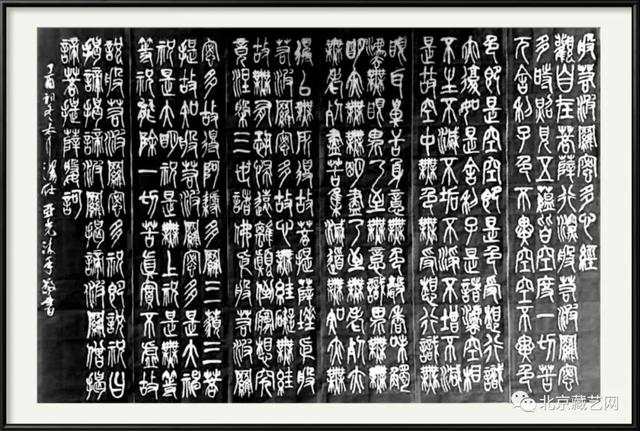 般若波羅蜜多心經
觀自在菩薩行深般若波羅蜜
多時照見五蘊皆空度一切苦
厄舍利子色不異空空不異色
色即是空空即是色受想行識
亦復如是舍利子是諸法空相
不生不滅不垢不淨不增不減
是故空中無色無受想行識無
眼耳鼻舌身意無色聲香味觸
法無眼界乃至無意識界無無
明亦無無明盡乃至無老死亦
無老死盡苦集滅道無智亦無
得以無所得故菩提薩埵依般
若波羅蜜多故心無罣礙無罣
故無有恐怖遠離顛倒夢想究
竟涅槃三世諸佛依般若波羅
蜜多故得阿耨多羅三藐三菩
提故知般若波羅蜜多是大神
咒是大明咒是無上咒是無等
等咒能除一切苦真實不虛故
說般若波羅蜜多咒即說咒曰
揭諦揭諦波羅揭諦波羅僧揭
諦菩提薩婆訶
丁酉初 沐手敬書
北京藏艺网